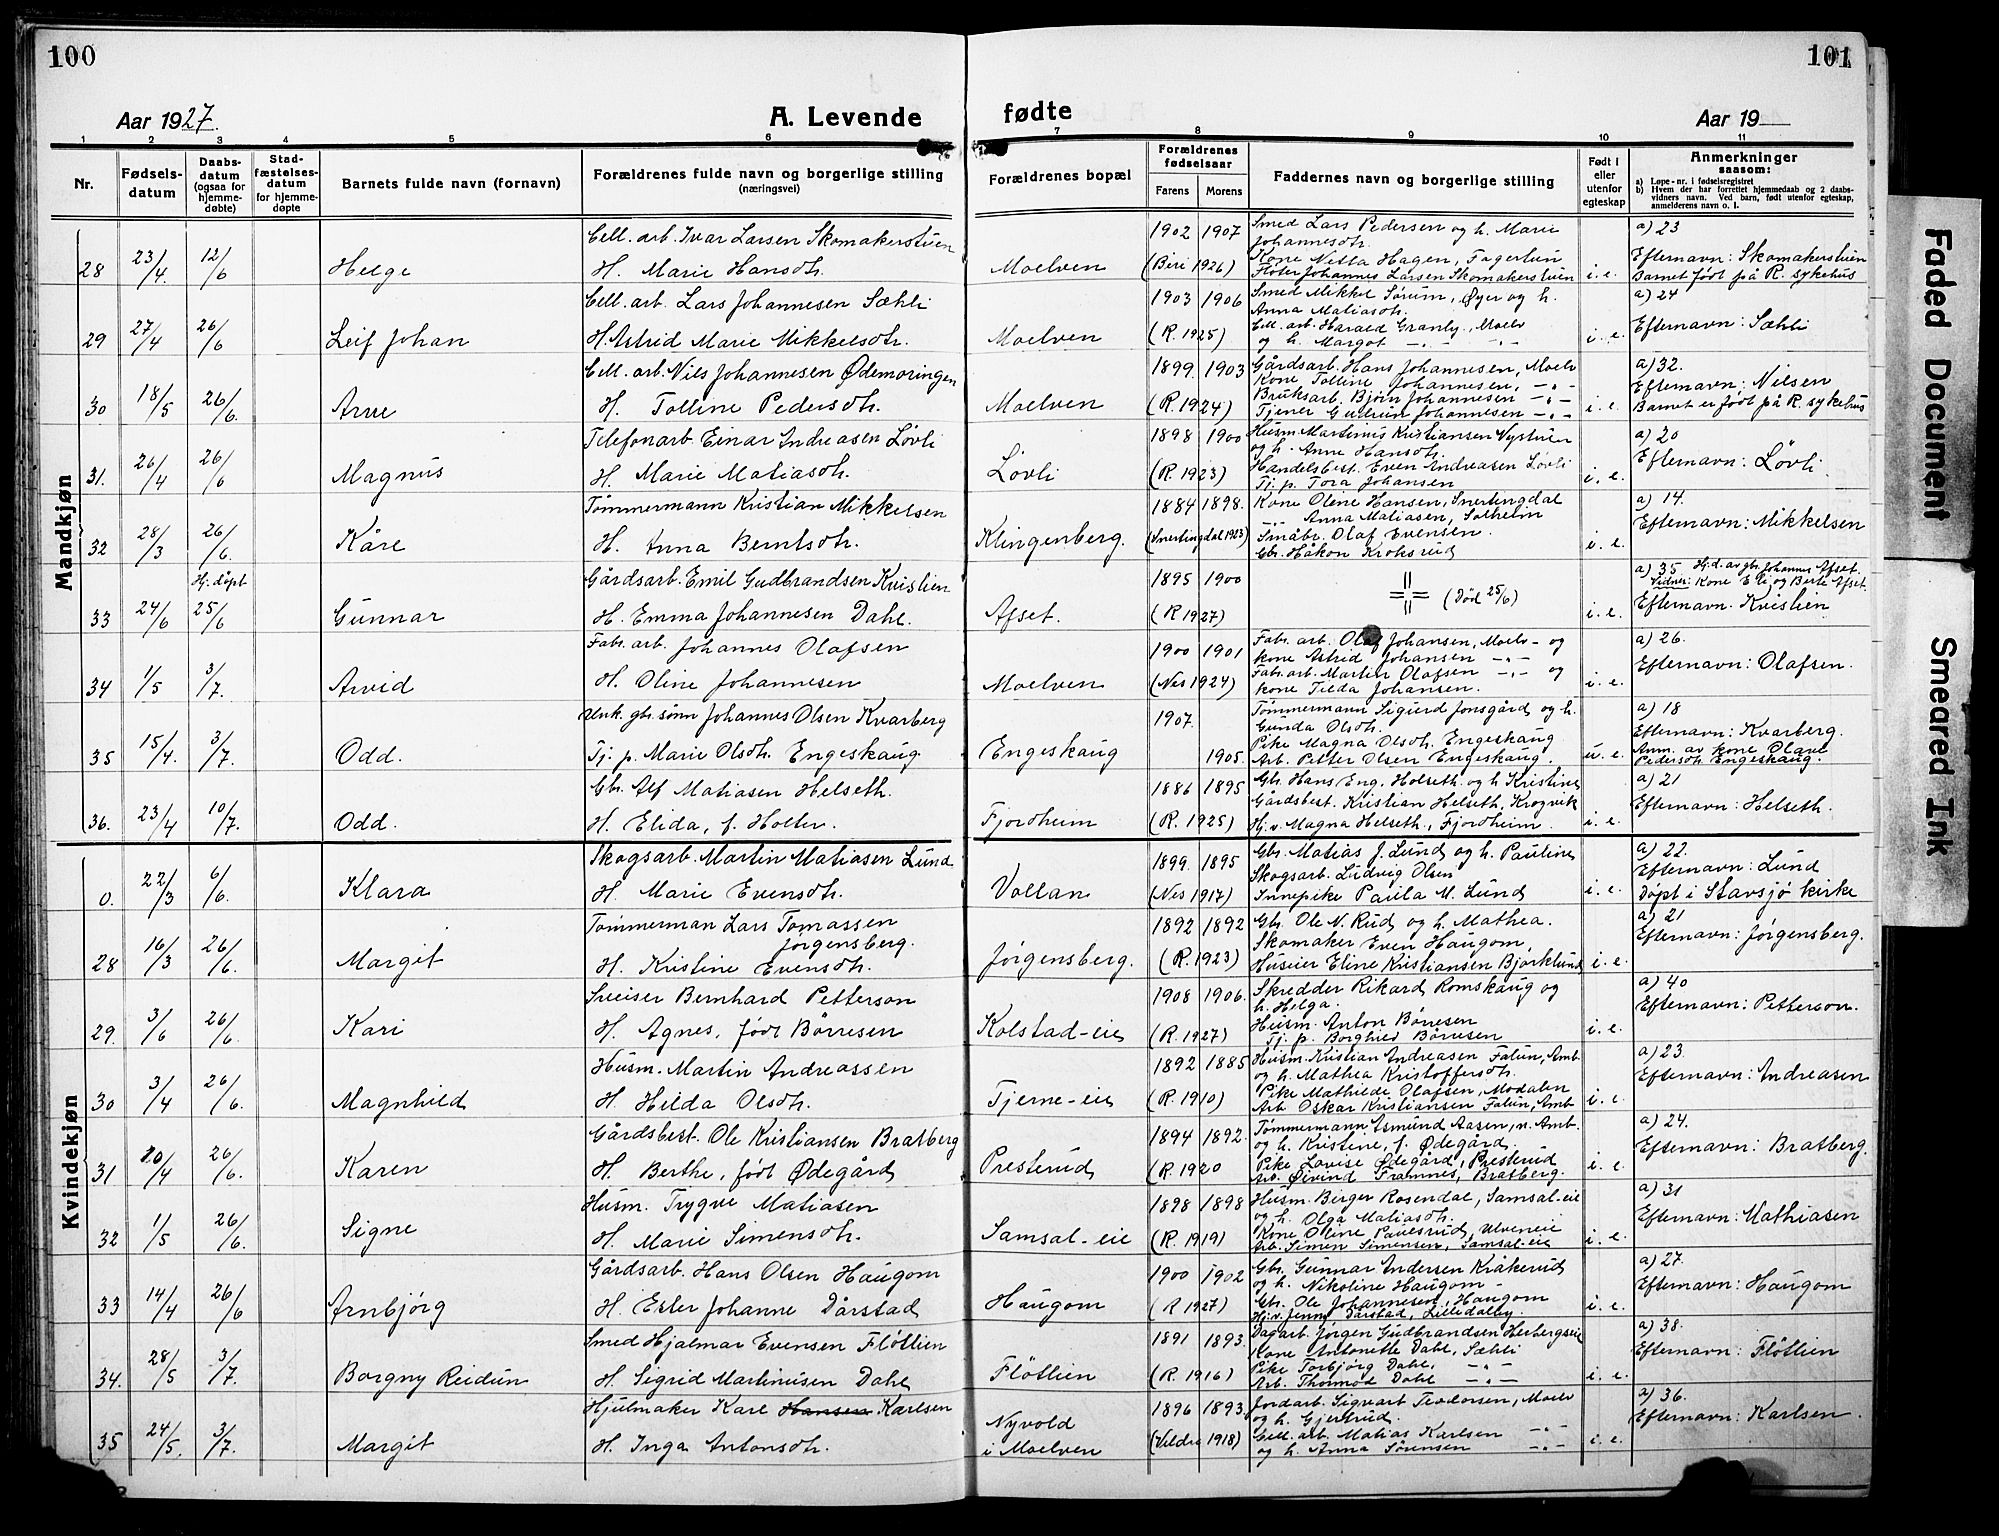 100
101
Aar 1927.
A. Levende
fødte
Aar 19
1 2 3 4 5 6 7 8 9 10 11
Nr.
Fødsels-
datum
Daabs-
datum
(ogsaa for
hjemme-
døbte)
Stad-
fæstelses-
datum
for hjemme-
døpte
Barnets fulde navn (fornavn)
Forældrenes fulde navn og borgerlige stilling
(næringsvei)
Forældrenes bopæl
Forældrenes
fødselsaar
Farens Morens
Faddernes navn og borgerlige stilling
Født i
eller
utenfor
egteskap
Anmerkninger
saasom:
a) Løpe-nr. i fødselsregistret
b) Hvem der har forrettet hjemmedaab og 2 daabs-
vidners navn. Ved barn, født utenfor egteskap,
anmelderens navn o. l.
Mandkjøn
28 23/4. 12/6 Helge
Cell. arb. Ivar Larsen Skomakerstuen
H. Marie Hansdtr.
Moelven
1902 1907
(Beri 1926)
Smed Lars Pedersen og h. Marie
Johannesdtr.
Kone Netta Hagen, Fagerlun
Fløter Johannes Larsen Skomakerstuen
i. e.
a) 23
Efternavn: Skomakerstuen
Barnet født på R. sykehus
29 27/4 26/6 Leif Johan
Cell. arb. Lars Johannesen Sæhli
H. Astrid Marie Mikkelsdtr.
Moelven
1903 1906
(R. 1925)
Smed Mikkel Sørum, Øyer og h.
Anna Matiasdtr.
Cell. arb. Harald Granly, Moelv
og h. Margot -„- -„-
i. e.
a) 24
Efternavn: Sæhli
30 18/5 26/6. Arne
Cell. arb. Nils Johannesen Ødemoringen
H. Tolline Pedersdtr.
Moelven
1899 1903
(R. 1924)
Gårdsarb. Hans Johannesen, Moelv
Kone Tolline Johannesen, -„-
Bruksarb. Bjørn Johannesen -„-
Tjener Gudrun Johannesen -„-
i. e.
a) 32.
Efternavn: Nilsen
Barnet er født på R. sykehus
31. 26/4 26/6 Magnus
Telefonarb Einar Andreasen Løvli
H. Marie Matiasdtr.
Løvli
1898 1900
(R. 1923)
Husm. Martinus Kristiansen Nystuen
og h. Anne Hansdtr.
Handelsbest. Even Andreasen Løvli
Tj. p. Tora Johansen
i. e.
a) 20
Efternavn: Løvli
32 28/3 26/6. Kåre
Tømmermann Kristian Mikkelsen
H. Anna Berntsdtr.
Klingenberg.
1884 1898.
(Snertingdal 1923)
Kone Oline Hansen, Snertingdal
Anna Matiasen, Solheim
Småbr. Olaf Evensen
Gbr. Håkon Kroksrud
i. e.
a) 14.
Efternavn: Mikkelsen
Hj. døpt
33 24/6 25/6 Gunnar
Gårdsarb. Emil Gudbrandsen Kvislien
H. Emma Johannesen Dahl.
Afset.
1895 1900
(R 1927)
(Død 25/6)
i. e.
a) 35 Hj. d. av gbr. Johannes Afset.
Vidner: Kone Eli og Berte Afset.
Efternavn. Kvislien
34 1/5 3/7. Arvid
Fabr. arb. Johannes Olafsen
H. Oline Johannesen
Moelven
1900 1901
(Nes 1924)
Fabr. arb. Olaf Johansen, Moelv - og
kone Astrid Johansen -„-
Fabr. arb. Martin Olafsen -„- og
kone Tilda Johansen.
i. e.
a) 26.
Efternavn: Olafsen.
35 15/4. 3/7. Odd.
Unk. gbr. sønn Johannes Olsen Kvarberg
Tj. p. Marie Olsdtr. Engeskaug
Engeskaug
1907.
1905.
Tømmermann Sigurd Jonsgård og h.
Gunda Olsdtr.
Pike Magna Olsdtr. Engeskaug
Arb. Petter Olsen Engeskaug.
u. e.
a) 18
Efternavn: Kvarberg.
Anm. av kone Olave
Pedersdtr. Engeskaug.
36. 23/4 10/7. Odd.
Gbr. Alf Matiasen Helseth.
H. Elida, f. Holter.
Fjordheim
1886 1895
(R. 1925)
Gbr. Hans Eng. Helseth og h Kristine
Gårdsbest. Kristian Helseth, Krogvik
Hj. v. Magna Helseth, Fjordheim.
i. e.
a) 21
Efternavn: Helseth.
Kvindekjøn
0. 22/3 6/6. Klara
Skogsarb. Martin Matiasen Lund
H. Marie Evensdtr.
Vollan
1899. 1895
(Nes 1917)
Gbr. Matias J. Lund og h. Pauline
Skogsarb. Ludvig Olsen
Innepike Paula M. Lund
i. e.
a) 22.
Efternavn: Lund
Døpt i Stavsjø kirke
28 16/3 26/6. Margit
Tømmerman Lars Tomassen
Jørgensberg.
H. Kristine Evensdtr.
Jørgensberg.
1892 1892
(R. 1923)
Gbr. Ole N. Rud og h. Mathea.
Skomaker Even Haugom,
Huseier Eline Kristiansen Bjørklund
i. e.
a) 21
Efternavn: Jørgensberg.
29. 3/6 26/6. Kari
Sveiser Bernhard Petterson
H. Agnes, født Børresen
Kolstad-eie
1908 1906.
(R. 1927)
Skredder Rikard Romskaug og
h. Helga.
Husm. Anton Børresen
Tj. p. Borghild Børresen
i. e.
a) 40
Efternavn: Petterson.
30 3/4 26/6. Magnhild
Husm. Martin Andreassen
H. Hilda Olsdtr.
Tjerne-eie
1892 1885
(R. 1910)
Husm. Kristian Andreasen Falun, Amb.
og h. Mathea Kristoffersdtr.
Pike Mathilde Olafsen, Modalen
Arb. Oskar Kristiansen Falun, Amb.
i. e.
a) 23.
Efternavn: Andreasen
31 20/4 26/6. Karen
Gårdsbest. Ole Kristiansen Bratberg
H. Berthe, født Ødegård
Presterud
1894 1892.
(R. 1920
Tømmermann Asmund Aasen, n. Amb.
og h. Kristine, f. Ødegård.
Pike Lovise Ødegård, Presterud
Arb. Øivind Framnes, Bratberg.
i. e.
a) 24.
Efternavn: Bratberg.
32 1/5 26/6. Signe
Husm. Trygve Matiasen
H. Marie Simensdtr.
Samsal-eie
1898 1898
(R. 1919)
Husm. Birger Rosendal, Samsal-eie
og h. Olga Matiasdtr.
Kone Oline Paulsrud, Ulveneie
Arb. Simen Simensen, Samsal-eie
i. e.
a) 31
Efternavn: Mathiasen
33 14/4 26/6 Arnbjørg
Gårdsarb. Hans Olsen Haugom
H. Ester Johanne Dårstad
Haugom
1900 1902
(R 1927)
Gbr. Gunnar Andersen Kråkerud
og h. Nikoline Haugom -
Gbr. Ole Johannesen, Haugom
Hj. v. Jenny Dårstad, Lilledalby.
i. e.
a) 27.
Efternavn: Haugom
34. 28/5 3/7. Borgny Reidun
Smed Hjalmar Evensen Fløtlien
H. Sigrid Martinusen Dahl
Fløtlien
1891 1893.
(R. 1916)
Dagarb. Jørgen Gudbrandsen Herbergseie
Kone Antonette Dahl, Sæhli
Pike Torbjørg Dahl, -„-
Arb. Thormod Dahl -„-
i. e.
a) 38.
Efternavn: Fløtlien
35 24/5. 3/7. Margit
Hjulmaker Karl Hansen Karlsen
H. Inga Antonsdtr.
Nyvold
i Moelven
1896 1893.
(Veldre 1918)
Jordarb. Sigvart Teodorsen, Moelv
og h. Gjertrud.
Cell. arb. Matias Karlsen -„-
og h. Anna Sørensen -„-
i. e.
a) 36.
Efternavn: Karlsen.
Faded Document
Smeared Ink